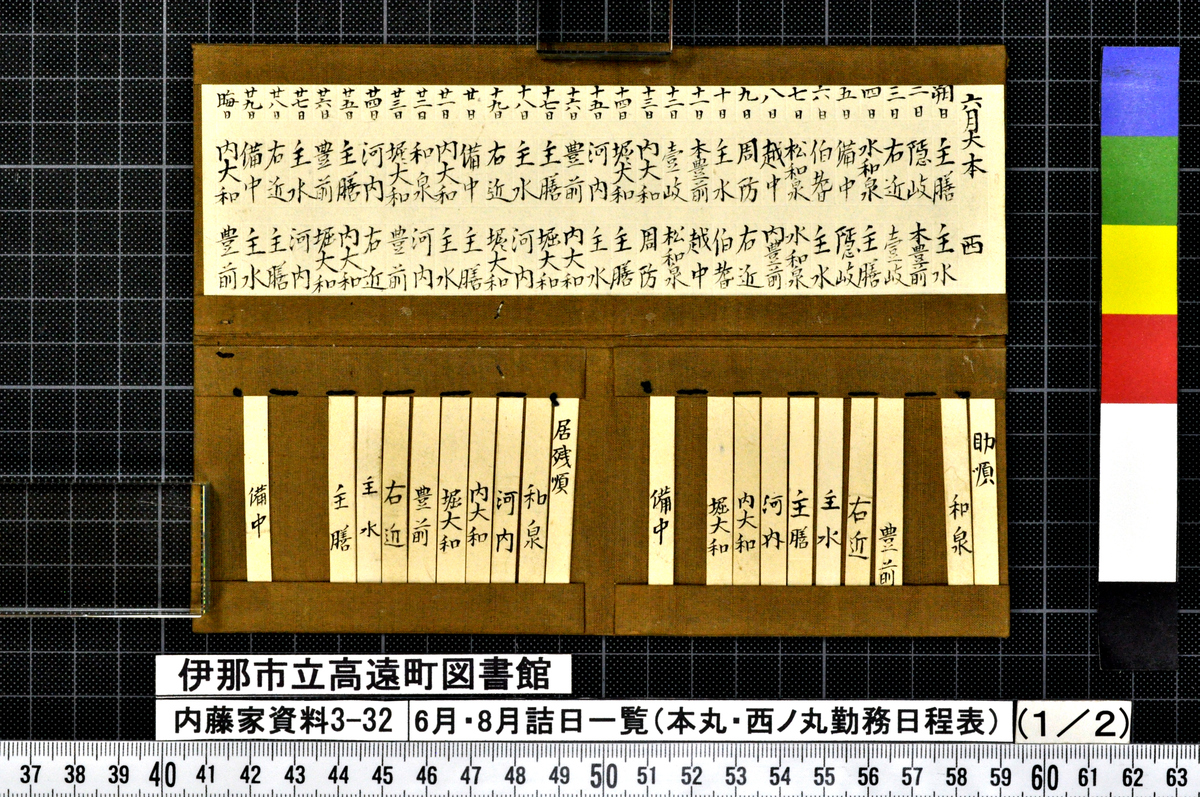 六月大 本 西
朔日 主膳 主水
二日 隠岐 本豊前
三日 右近 壹岐
四日 水和泉 主膳
五日 備中 隠岐
六日 伯耆 主水
七日 松和泉 水和泉
八日 越中 内豊前
九日 周防 右近
十日 主水 伯耆
十一日 本豊前 越中
十二日 壹岐 松和泉
十三日 内大和 周防
十四日 堀大和 主膳
十五日 河内 主水
十六日 豊前 内大和
十七日 主膳 堀大和
十八日 主水 河内
十九日 右近 堀大和
廿日 備中 主膳
廿一日 内大和 主水
廿二日 和泉 河内
廿三日 堀大和 豊前
廿四日 河内 右近
廿五日 主膳 内大和
廿六日 豊前 堀大和
廿七日 主水 河内
廿八日 右近 主膳
廿九日 備中 主水
晦日 内大和 豊前
助順
和泉
豊前
右近
主水
主膳
河内
内大和
堀大和
備中
居残順
和泉
河内
内大和
堀大和
豊前
右近
主水
主膳
備中
伊那市立高遠町図書館
内藤家資料3-32 6月・8月詰日一覧(本丸・西ノ丸勤務日程表) (1/2)
37 38 39 40 41 42 43 44 45 46 47 48 49 50 51 52 53 54 55 56 57 58 59 60 61 62 63